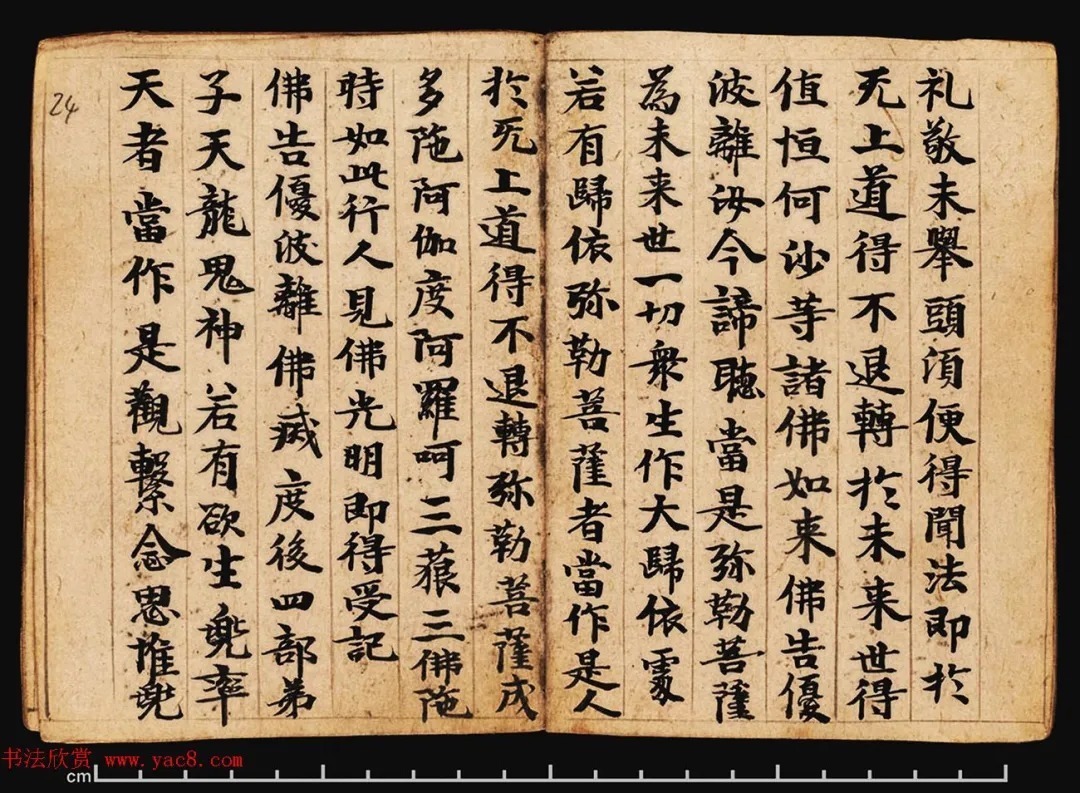 礼敬未舉頭湏便得聞法即於
无上道得不退轉於未來世得
值恒何沙等諸佛如来佛告優
波離汝今諦聽當是弥勒菩薩
為未来世一切衆生作大歸依處
若有歸依弥勒菩薩者當作是人
於无上道得不退轉弥勒菩薩成
多陁阿伽度阿羅呵三藐三佛陁
時如此行人見佛光明即得受記
佛告優波離佛滅度後四部弟
子天龍鬼神若有欲生兜率
天者當作是觀繫念思惟兜
24
书法欣赏 www.yac8.com
cm